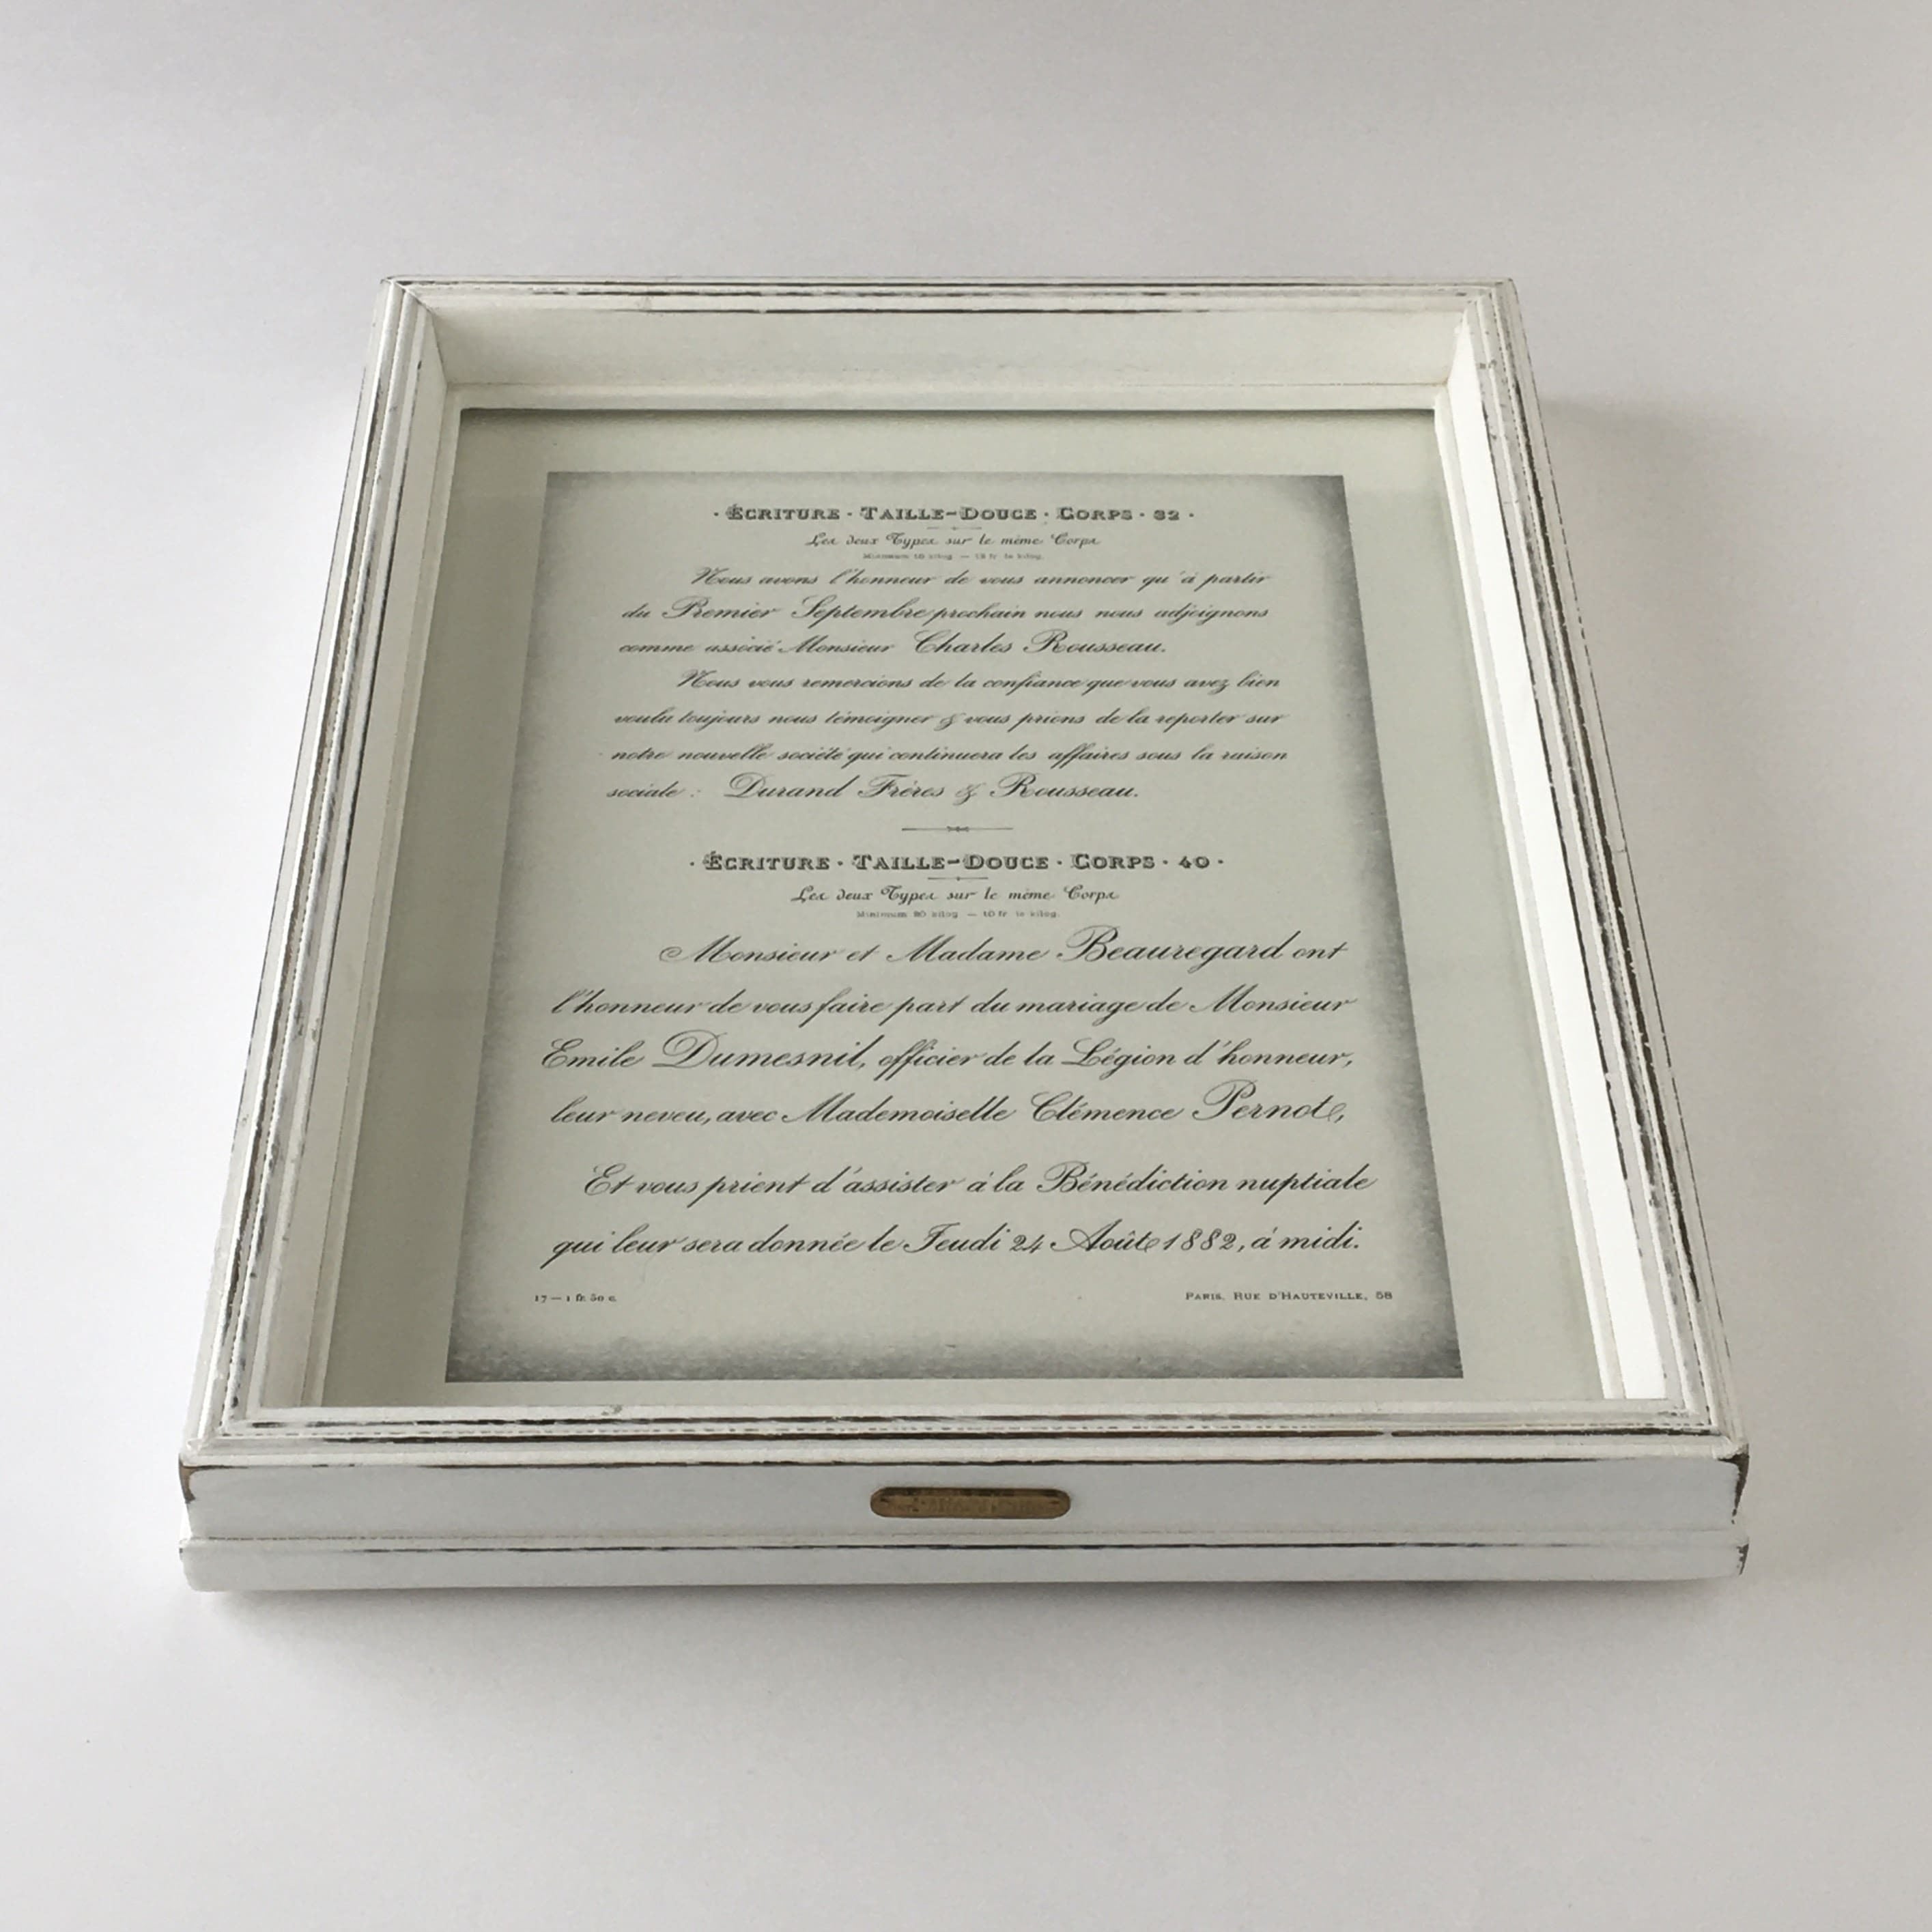 · ÉCRITURE · TAILLE-DOUCE · CORPS · 32 ·
Les deux Types sur le même Corps
Minimum 10 kilog — 12 fr le kilog.
Nous avons l'honneur de vous annoncer qu'à partir
du Premier Septembre prochain nous nous adjoignons
comme associé Monsieur Charles Rousseau.
Nous vous remercions de la confiance que vous avez bien
voulu toujours nous témoigner & vous prions de la reporter sur
notre nouvelle société qui continuera les affaires sous la raison
sociale : Durand Frères & Rousseau.
· ÉCRITURE · TAILLE-DOUCE · CORPS · 40 ·
Les deux Types sur le même Corps
Minimum 20 kilog — 10 fr le kilog.
Monsieur et Madame Beauregard ont
l'honneur de vous faire part du mariage de Monsieur
Emile Dumesnil, officier de la Légion d'honneur,
leur neveu, avec Mademoiselle Clémence Pernot,
Et vous prient d'assister à la Bénédiction nuptiale
qui leur sera donnée le Jeudi 24 Août 1882, à midi.
17 — 1 fr. 50 c.
PARIS, RUE D'HAUTEVILLE, 58